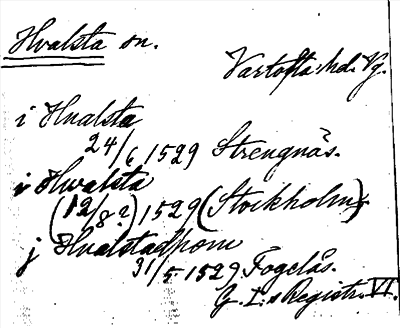 Hvalsta sn.
Vartofta hd. Vg.
i Hualsta
24/6 1529 Strengnäs.
i Hwalsta
(12/8 ?) 1529 (Stockholm).
j Hualstadhom
31/5 1529 Fogelås.
G. I:s Registr. VI.